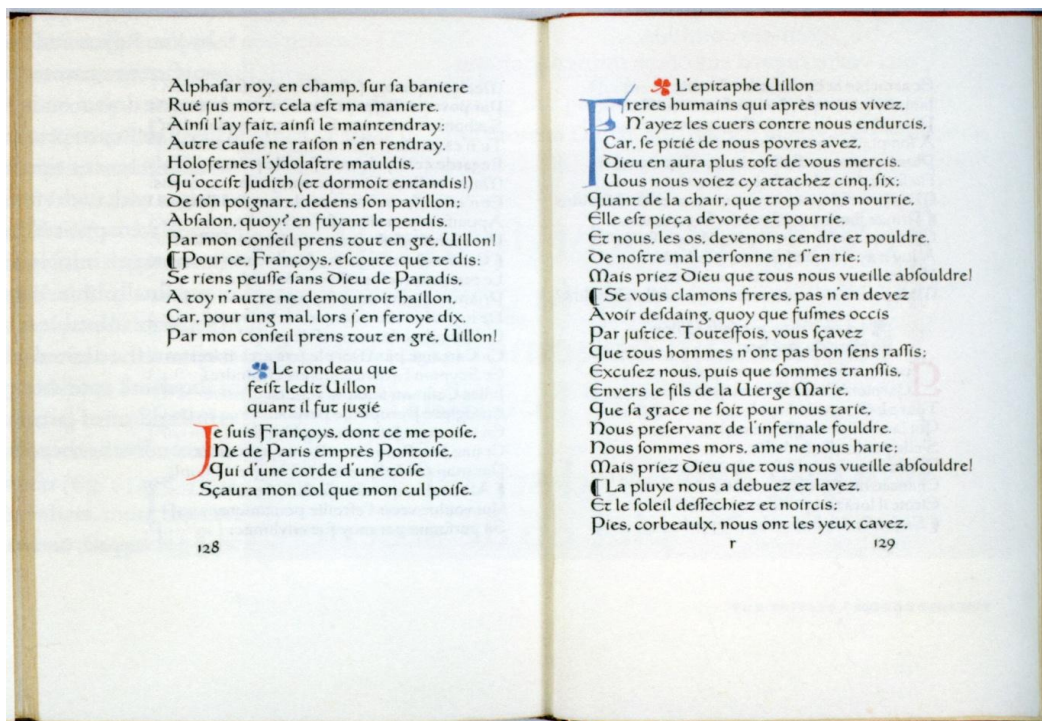 Alphasar roy, en champ, ſur ſa baniere
Rué jus mort, cela eſt ma maniere.
Ainſi l'ay fait, ainſi le maintendray:
Autre cauſe ne raiſon n'en rendray.
Holofernes l'ydolaſtre mauldis,
Qu'occiſt Judith (et dormoit entandis!)
De ſon poignart, dedens ſon pavillon;
Abſalon, quoy? en fuyant le pendis.
Par mon conſeil prens tout en gré, Uillon!
¶ Pour ce, Françoys, eſcoute que te dis:
Se riens peuſſe ſans Dieu de Paradis,
A toy n'autre ne demourroit haillon,
Car, pour ung mal, lors j'en feroye dix.
Par mon conſeil prens tout en gré, Uillon!
Le rondeau que
feiſt ledit Uillon
quant il fut jugié
Je ſuis Françoys, dont ce me poiſe,
Né de Paris emprès Pontoiſe,
Qui d'une corde d'une toiſe
Sçaura mon col que mon cul poiſe.
128
L'epitaphe Uillon
Freres humains qui après nous vivez,
N'ayez les cuers contre nous endurcis,
Car, ſe pitié de nous povres avez,
Dieu en aura plus toſt de vous mercis.
Uous nous voiez cy attachez cinq, ſix;
Quant de la chair, que trop avons nourrie,
Elle eſt pieça devorée et pourrie,
Et nous, les os, devenons cendre et pouldre.
De noſtre mal perſonne ne ſ'en rie;
Mais priez Dieu que tous nous vueille abſouldre!
¶ Se vous clamons freres, pas n'en devez
Avoir deſdaing, quoy que fuſmes occis
Par juſtice. Touteſfois, vous ſçavez
Que tous hommes n'ont pas bon ſens raſſis;
Excuſez nous, puis que ſommes tranſſis,
Envers le fils de la Uierge Marie,
Que ſa grace ne ſoit pour nous tarie,
Nous preſervant de l'infernale fouldre.
Nous ſommes mors, ame ne nous harie;
Mais priez Dieu que tous nous vueille abſouldre!
¶ La pluye nous a debuez et lavez,
Et le ſoleil deſſechiez et noircis;
Pies, corbeaulx, nous ont les yeux cavez,
r 129